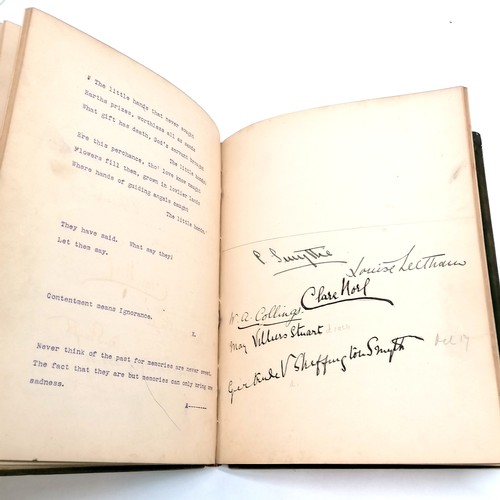 " The little hands that never sought
Earths prizes, worthless all as sands
What gift has death, God's servant brought
The little hands?
Ere this perchance, tho' love know naught
Flowers fill them, grown in lovlier lands
Where hands of guiding angels caught
The little hands."
They have said. What say they?
Let them say.
Contentment means Ignorance.
Never think of the past for memories are never sweet.
The fact that they are but memories can only bring one
sadness.
A------
P. Smythe
Louise Leetham
Clare Norl
W. A. Collings.
May Villiers Stuart
Gertrude V Sheffington Smyth